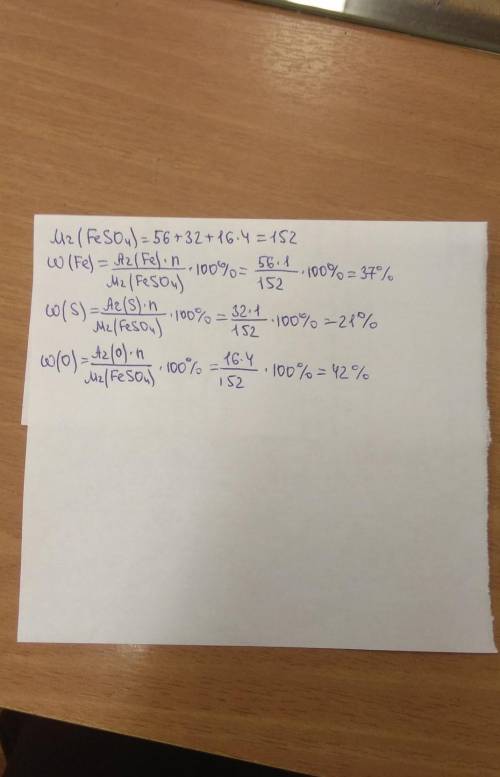 Mr(FeSO₄)=56+32+16·4=152
ω(Fe)=Ar(Fe)·n/Mr(FeSO₄)·100%=56·1/152·100%=37%
ω(S)=Ar(S)·n/Mr(FeSO₄)·100%=32·1/152·100%=21%
ω(O)=Ar(O)·n/Mr(FeSO₄)·100%=16·4/152·100%=42%